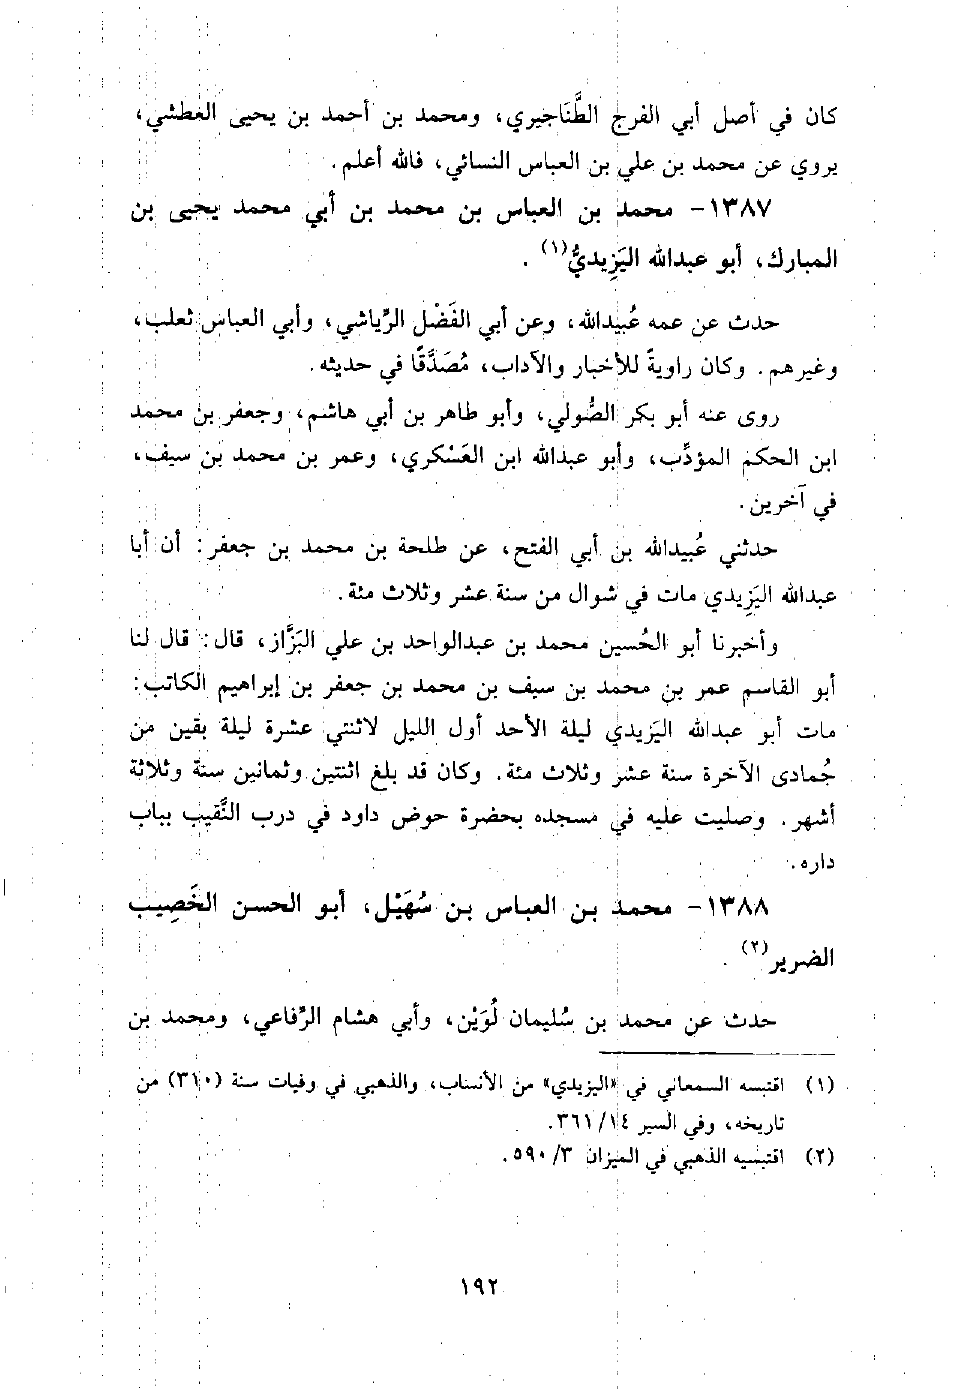 كان في أصل أبي الفرج الطَّنَاجيري، ومحمد بن أحمد بن يحيى العطشي،
يروي عن محمد بن علي بن العباس النسائي، فالله أعلم.
١٣٨٧- محمد بن العباس بن محمد بن أبي محمد يحيى بن
المبارك، أبو عبدالله اليَزِيديُّ(١) .
حدث عن عمه عُبيدالله، وعن أبي الفَضْل الرِّياشي، وأبي العباس ثعلب،
وغيرهم. وكان راويةً للأخبار والآداب، مُصَدَّقًا في حديثه.
روى عنه أبو بكر الصُّولي، وأبو طاهر بن أبي هاشم، وجعفر بن محمد
ابن الحكم المؤدِّب، وأبو عبدالله ابن العَسْكري، وعمر بن محمد بن سيف،
في آخرين.
حدثني عُبيدالله بن أبي الفتح، عن طلحة بن محمد بن جعفر: أن أبا
عبدالله اليَزِيدي مات في شوال من سنة عشر وثلاث مئة.
وأخبرنا أبو الحُسين محمد بن عبدالواحد بن علي البَزَّاز، قال: قال لنا
أبو القاسم عمر بن محمد بن سيف بن محمد بن جعفر بن إبراهيم الكاتب:
مات أبو عبدالله اليَزِيدي ليلة الأحد أول الليل لاثنتي عشرة ليلة بقين من
جُمادى الآخرة سنة عشر وثلاث مئة. وكان قد بلغ اثنتين وثمانين سنة وثلاثة
أشهر. وصليت عليه في مسجده بحضرة حوض داود في درب النَّقيب بباب
داره.
١٣٨٨- محمد بن العباس بن سُهَيْل، أبو الحسن الخَصِيب
الضرير(٢) .
حدث عن محمد بن سُليمان لُوَيْن، وأبي هشام الرِّفاعي، ومحمد بن
(١) اقتبسه السمعاني في «اليزيدي» من الأنساب، والذهبي في وفيات سنة (٣١٠) من
تاريخه، وفي السير ١٤/ ٣٦١.
(٢) اقتبسيه الذهبي في الميزان ٣/ ٥٩٠.
١٩٢